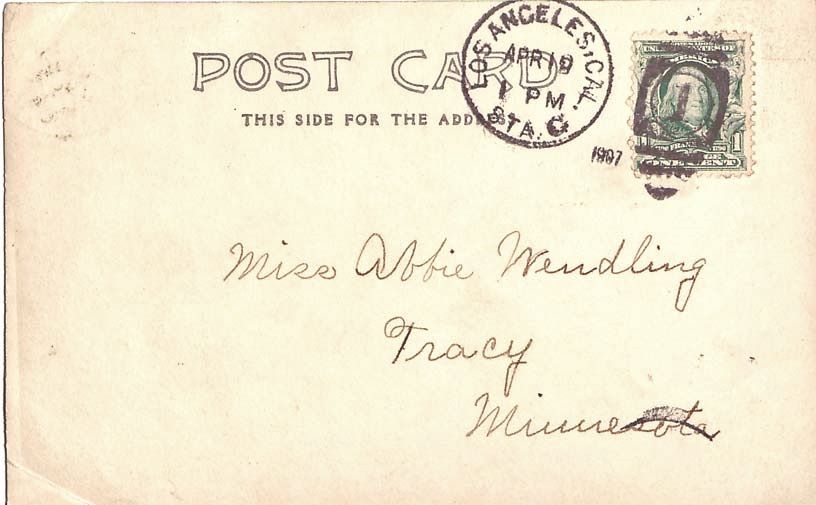 POST CARD
THIS SIDE FOR THE ADDRESS
LOS ANGELES, CAL.
APR 19
1 PM
STA. C
1907
1
FRANKLIN
1
ONE CENT
Miss Abbie Wendling
Tracy
Minnesota